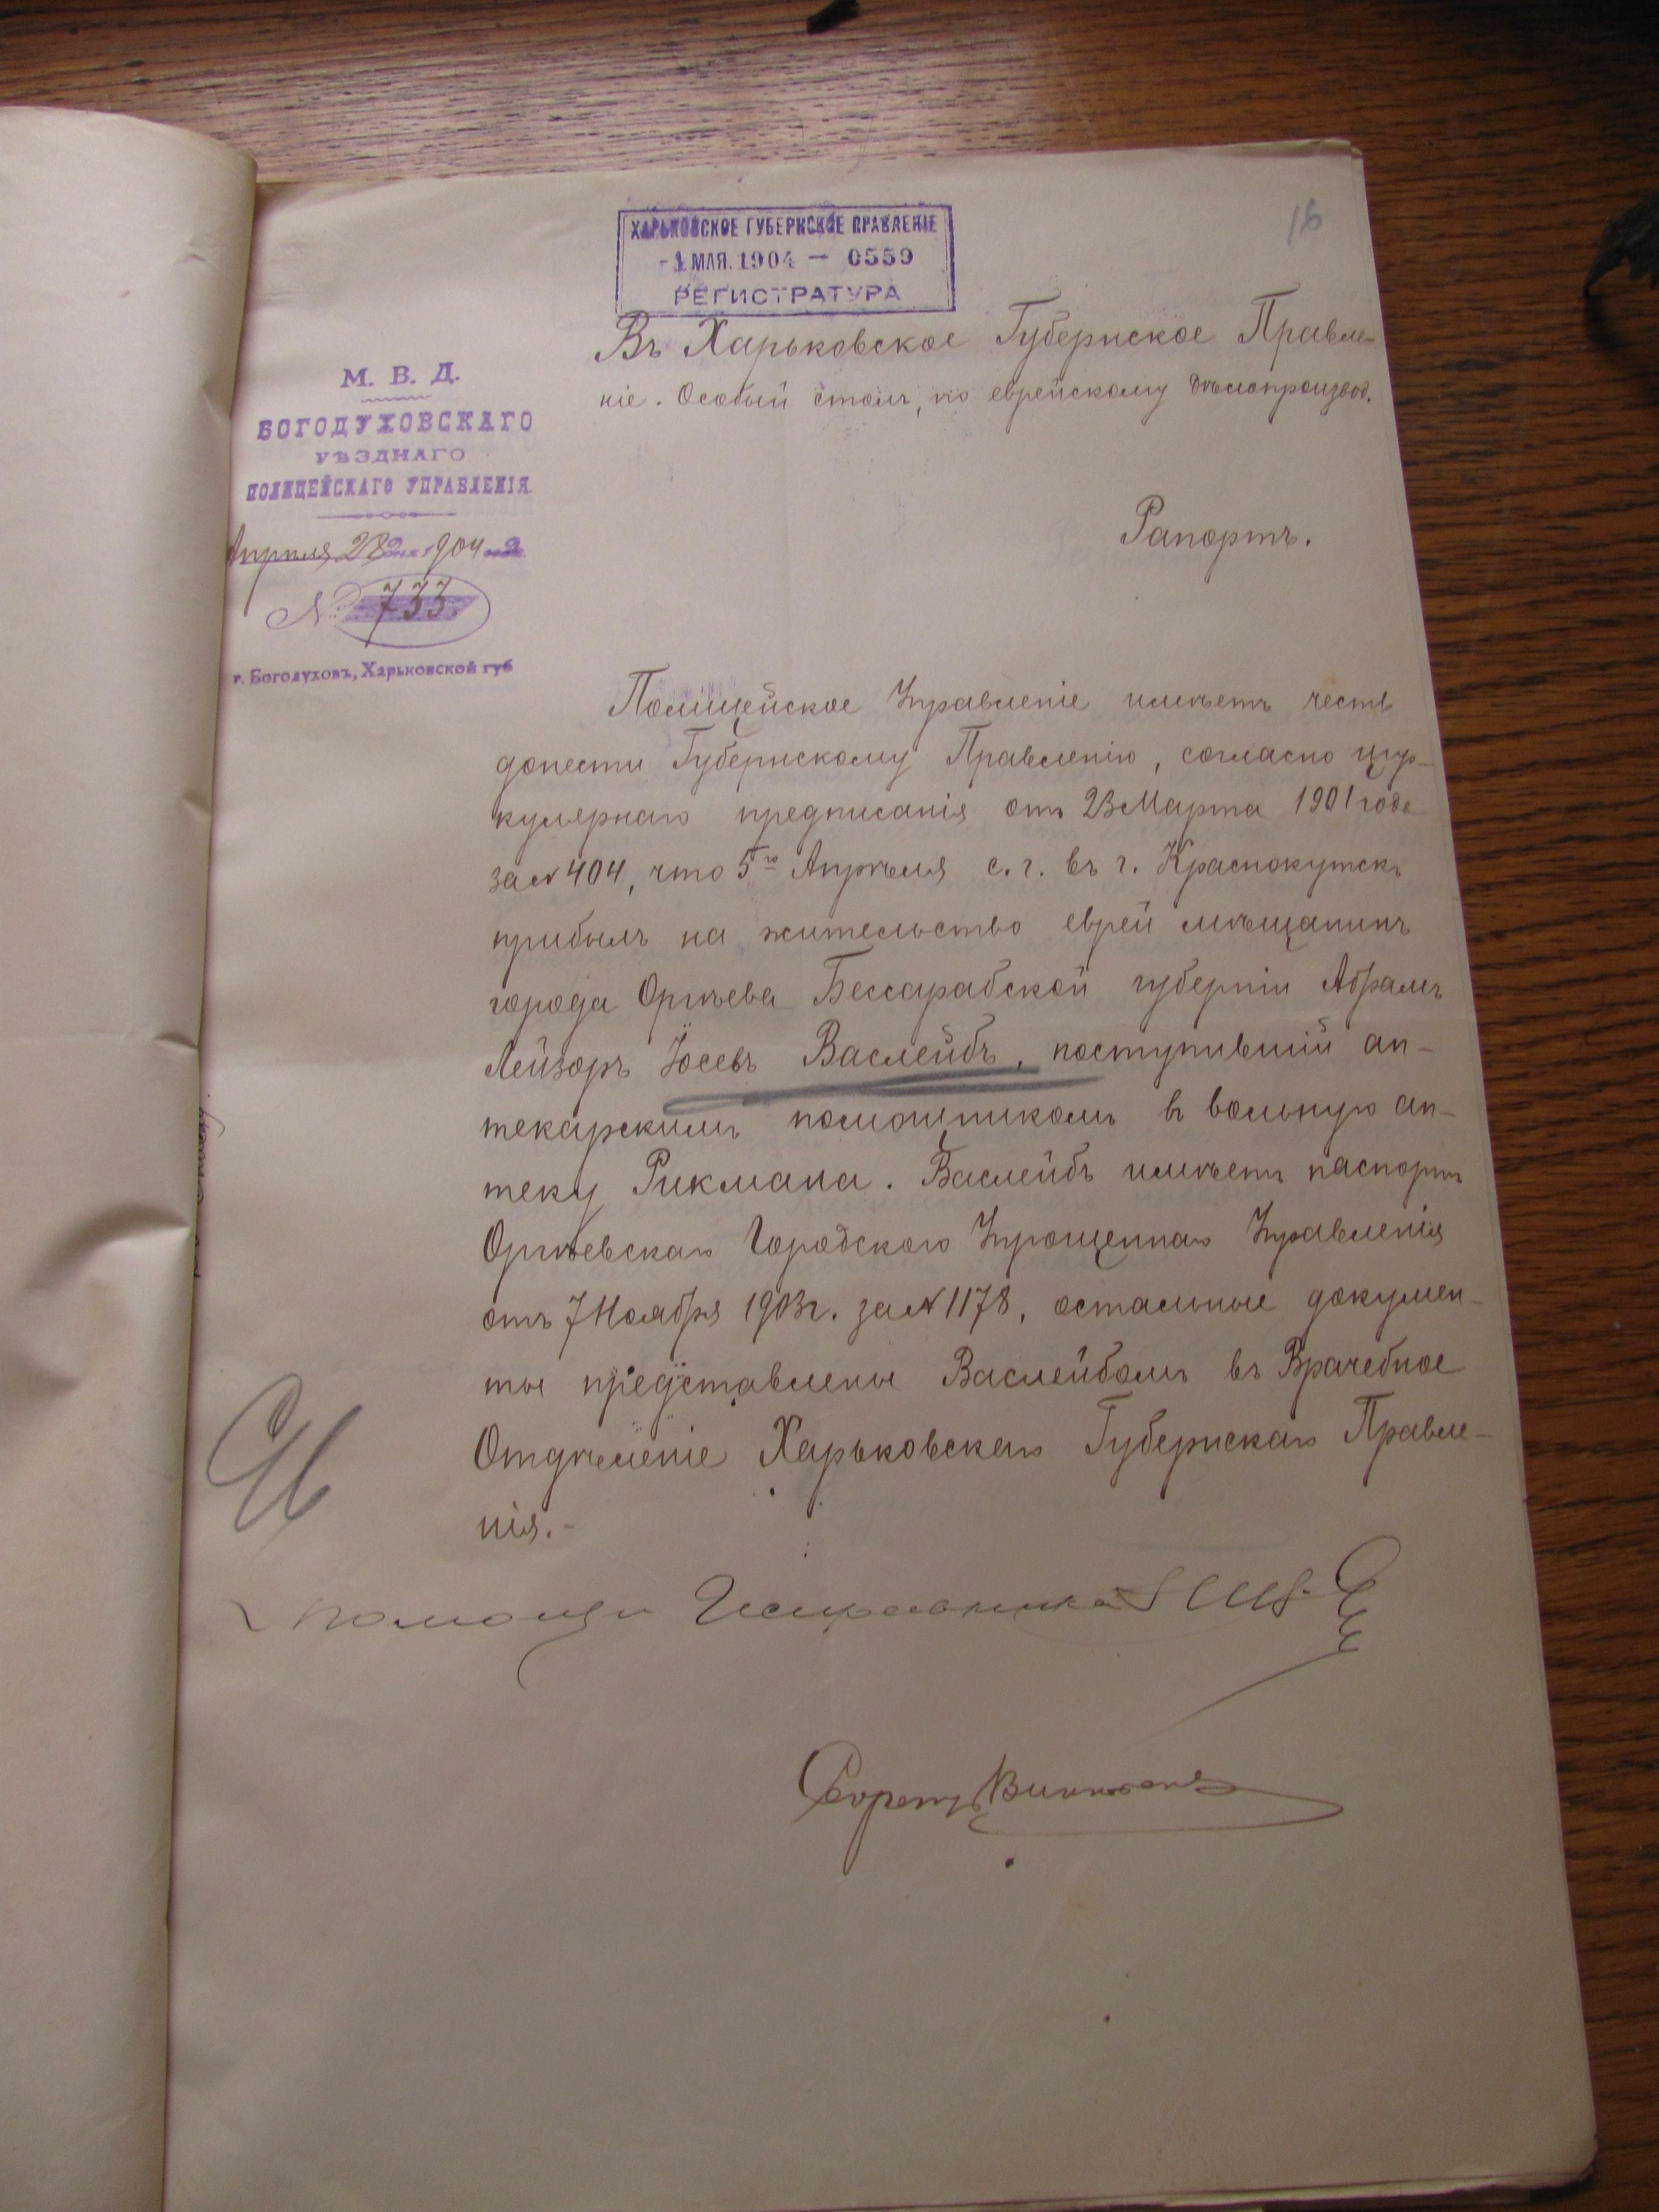 16
ХАРЬКОВСКОЕ ГУБЕРНСКОЕ ПРАВЛЕНІЕ
-1 МАЯ. 1904 — 0559
РЕГИСТРАТУРА
Въ Харьковское Губернское Правле-
ніе. Особый столъ, по еврейскому дѣлопроизвод.
М. В. Д.
БОГОДУХОВСКАГО
УѢЗДНАГО
ПОЛИЦЕЙСКАГО УПРАВЛЕНІЯ
Апрѣля 28 дня 1904 года
№ 733
г. Богодуховъ, Харьковской губ
Рапортъ.
Полицейское Управленіе имѣетъ честь
донести Губернскому Правленію, согласно цир-
кулярнаго предписанія отъ 23 Марта 1901 года
за № 404, что 5го Апрѣля с. г. въ г. Краснокутскъ
прибылъ на жительство еврей мѣщанинъ
города Оргѣева Бессарабской губерніи Абрамъ
Лейзоръ Іосевъ Васлейбъ, поступившій ап-
текарскимъ помощникомъ въ вольную ап-
теку Рикмана. Васлейбъ имѣетъ паспортъ
Оргѣевскаго Городского Упрощеннаго Управленія
отъ 7 Ноября 1903 г. за № 1178, остальные докумен-
ты представлены Васлейбомъ въ Врачебное
Отдѣленіе Харьковскаго Губернскаго Правле-
нія.-
Помощн Исправника
Секретарь